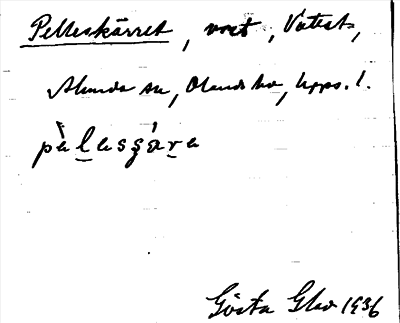 Pelleskärret, vret, Vätist,
Alunda sn, Olands hd, Upps. l.
pèlesgára
Gösta Glad 1936